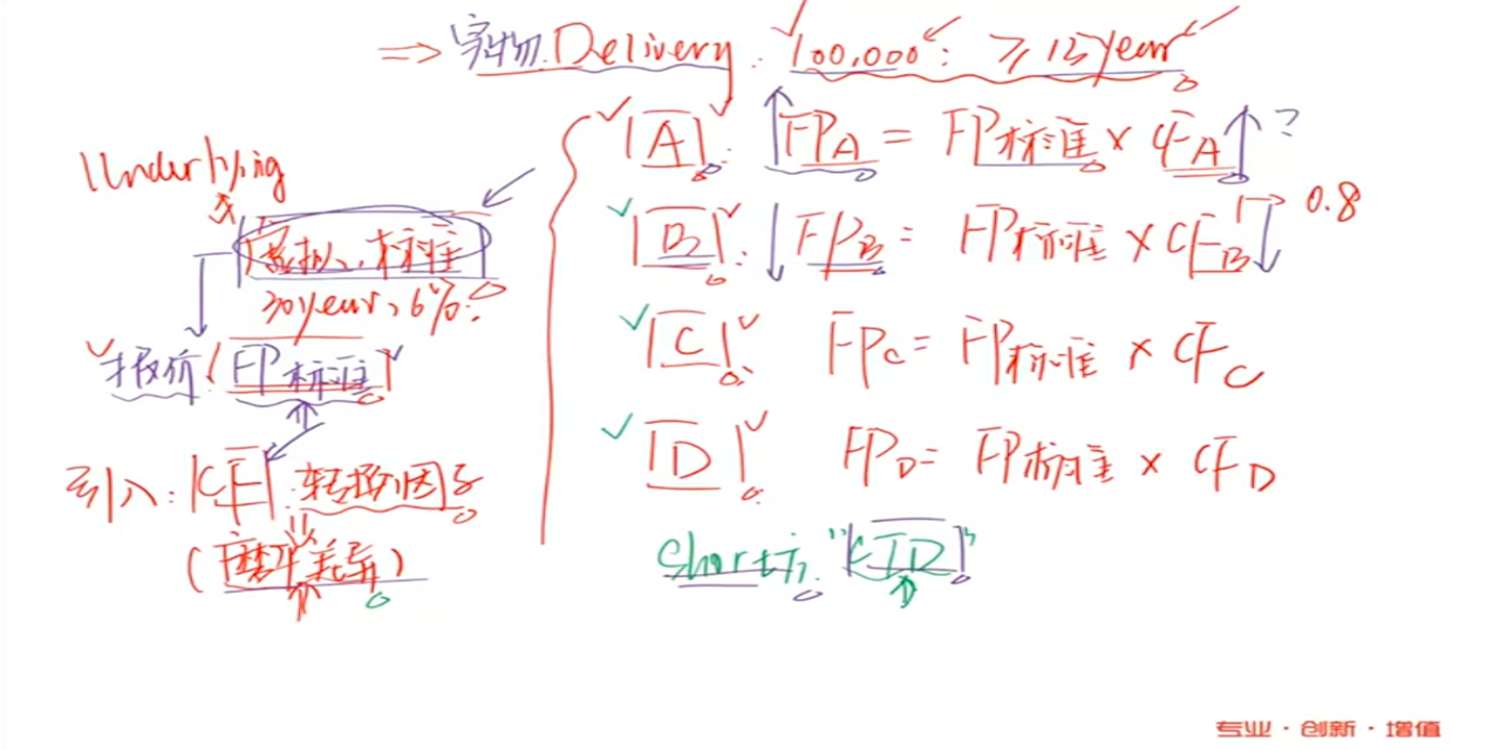 ⇒ 实物 Delivery: 100,000: ≥ 15 year
Underlying
虚拟、标准
30 year, 6%:
报价: FP标准
引入: CF: 转换因子
(磨平差异)
A: FP_A = FP标准 × CF_A ?
B: FP_B = FP标准 × CF_B 0.8
C FP_C = FP标准 × CF_C
D FP_D = FP标准 × CF_D
Short方: "CTD"
专业·创新·增值